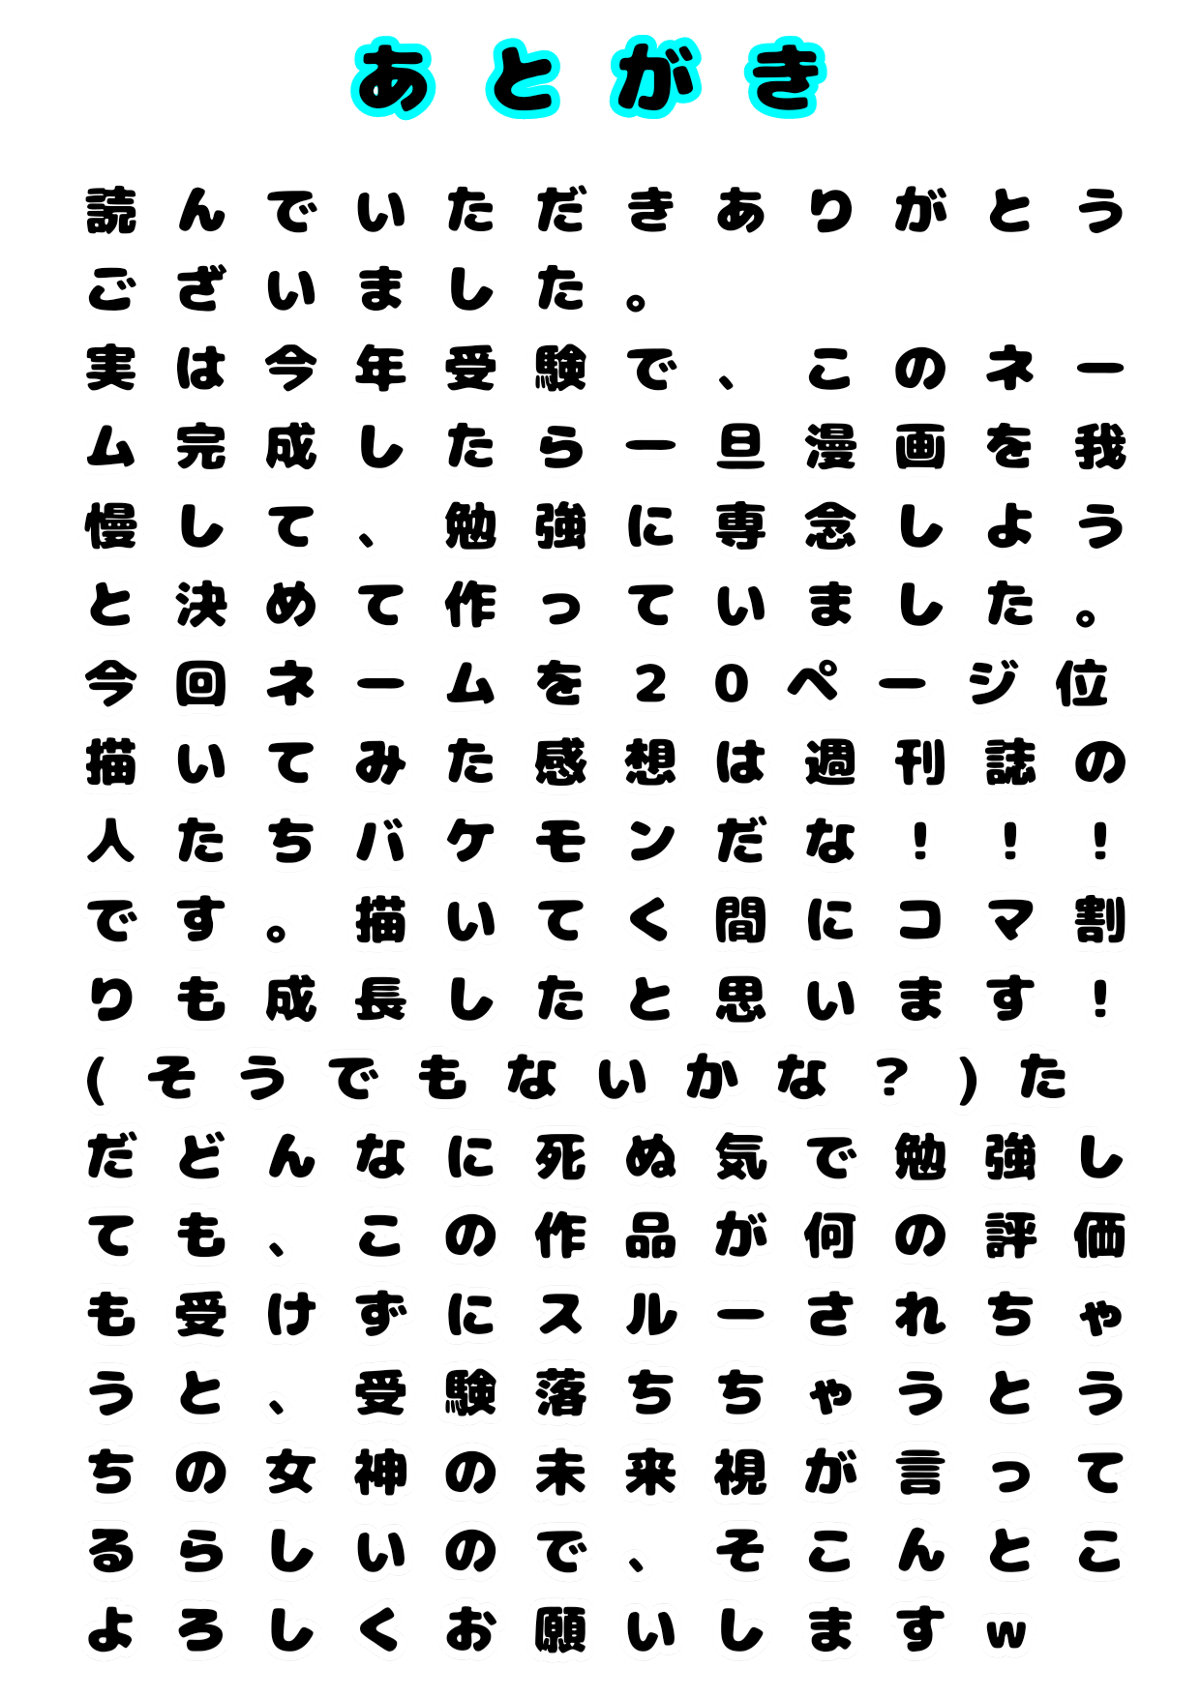 あとがき
読んでいただきありがとう
ございました。
実は今年受験で、このネー
ム完成したら一旦漫画を我
慢して、勉強に専念しよう
と決めて作っていました。
今回ネームを20ページ位
描いてみた感想は週刊誌の
人たちバケモンだな!!!
です。描いてく間にコマ割
りも成長したと思います!
(そうでもないかな?)た
だどんなに死ぬ気で勉強し
ても、この作品が何の評価
も受けずにスルーされちゃ
うと、受験落ちちゃうとう
ちの女神の未来視が言って
るらしいので、そこんとこ
よろしくお願いしますw